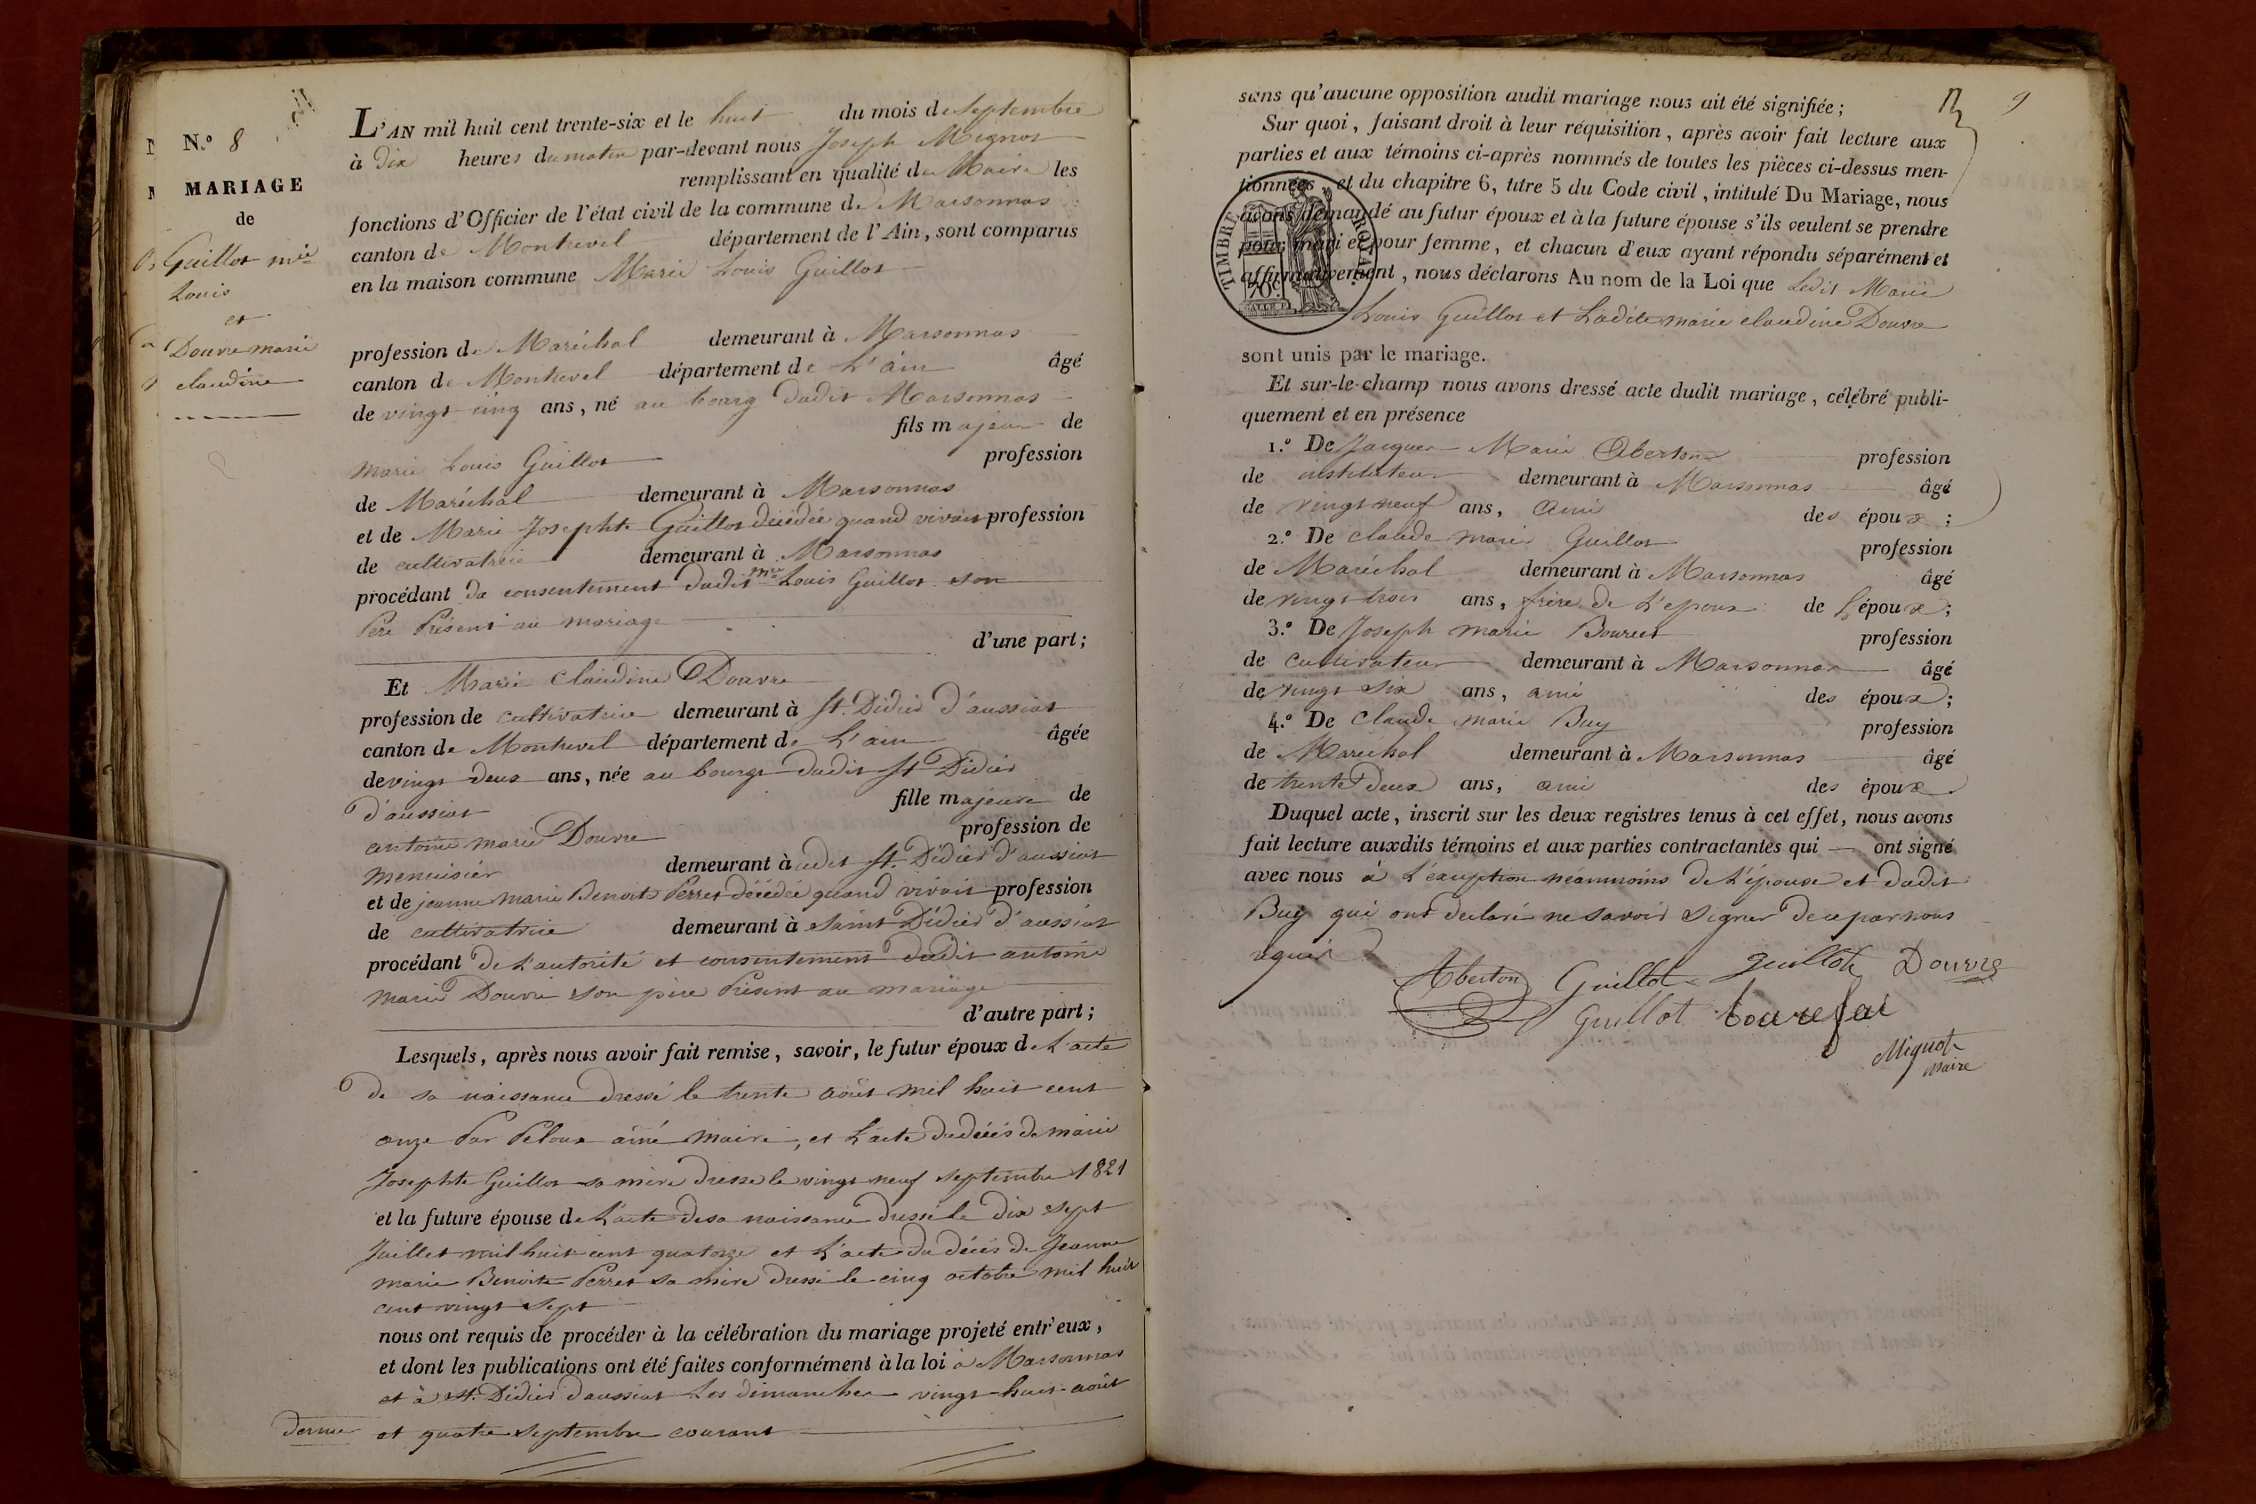 N.º 8
MARIAGE
de
Guillot mie
Louis
et
Douvre marie
claudine
L'AN mil huit cent trente-six et le huit du mois de Septembre
à Dix heures du matin par-devant nous Joseph Mignot
remplissant en qualité de Maire les
fonctions d'Officier de l'état civil de la commune de Marsonnas
canton de Montrevel département de l'Ain, sont comparus
en la maison commune Marie Louis Guillot
profession de Maréchal demeurant à Marsonnas
canton de Montrevel département de L'ain âgé
de vingt cinq ans, né au bourg dudit Marsonnas
fils majeur de
marie Louis Guillot profession
de Maréchal demeurant à Marsonnas
et de Marie Josephte Guillot décédée quand vivait profession
de cultivatrice demeurant à Marsonnas
procédant du consentement dudit mie Louis Guillot son
Père Présent au mariage
d'une part;
Et Marie Claudine Douvre
profession de cultivatrice demeurant à St. Didier d'aussiat
canton de Montrevel département de L'ain âgée
de vingt deux ans, née au bourg dudit St Didier
d'aussiat fille majeure de
antoine marie Douvre profession de
menuisier demeurant à udit St. Didier d'aussiat
et de jeanne marie Benoite Perret décédée quand vivait profession
de cultivatrice demeurant à Saint Didier d'aussiat
procédant de L'autorité et consentement dudit antoine
marie Douvre son père Présent au mariage
d'autre part;
Lesquels, après nous avoir fait remise, savoir, le futur époux de L'acte
de sa naissance dressé le trente août mil huit cent
onze Par Peloux aîné maire, et L'acte du décès de marie
Josephte Guillot sa mère dressé le vingt neuf septembre 1821
et la future épouse de L'acte de sa naissance dressé le dix sept
Juillet mil huit cent quatorze et L'acte du décès de Jeanne
marie Benoite Perret sa mère dressé le cinq octobre mil huit
cent vingt sept
nous ont requis de procéder à la célébration du mariage projeté entr'eux,
et dont les publications ont été faites conformément à la loi à Marsonnas
et à St. Didier d'aussiat Les dimanches vingt-huit août
dernier et quatre septembre courant
9
sans qu'aucune opposition audit mariage nous ait été signifiée;
Sur quoi, faisant droit à leur réquisition, après avoir fait lecture aux
parties et aux témoins ci-après nommés de toutes les pièces ci-dessus men-
tionnées, et du chapitre 6, titre 5 du Code civil, intitulé Du Mariage, nous
avons demandé au futur époux et à la future épouse s'ils veulent se prendre
pour mari et pour femme, et chacun d'eux ayant répondu séparément et
affirmativement, nous déclarons Au nom de la Loi que Ledit Marie
Louis Guillot et Ladite marie claudine Douvre
TIMBRE ROYAL
70c
sont unis par le mariage.
Et sur-le-champ nous avons dressé acte dudit mariage, célébré publi-
quement et en présence
1.º De Jacques Marie Aberton profession
de instituteur demeurant à Marsonnas âgé
de vingt neuf ans, ami des époux;
2.º De claude marie Guillot profession
de Maréchal demeurant à Marsonnas âgé
de vingt trois ans, frère de L'epoux de L'époux;
3.º De Joseph marie profession
de cultivateur demeurant à Marsonnas âgé
de vingt six ans, ami des époux;
4.º De Claude marie Buy profession
de Maréchal demeurant à Marsonnas âgé
de trente deux ans, ami des époux.
Duquel acte, inscrit sur les deux registres tenus à cet effet, nous avons
fait lecture auxdits témoins et aux parties contractantes qui — ont signé
avec nous à L'exception neanmoins de L'épouse et dudit
Buy qui ont declaré ne savoir signer de ce par nous
requis
Aberton Guillot Guillot Douvre
Guillot
Mignot
maire